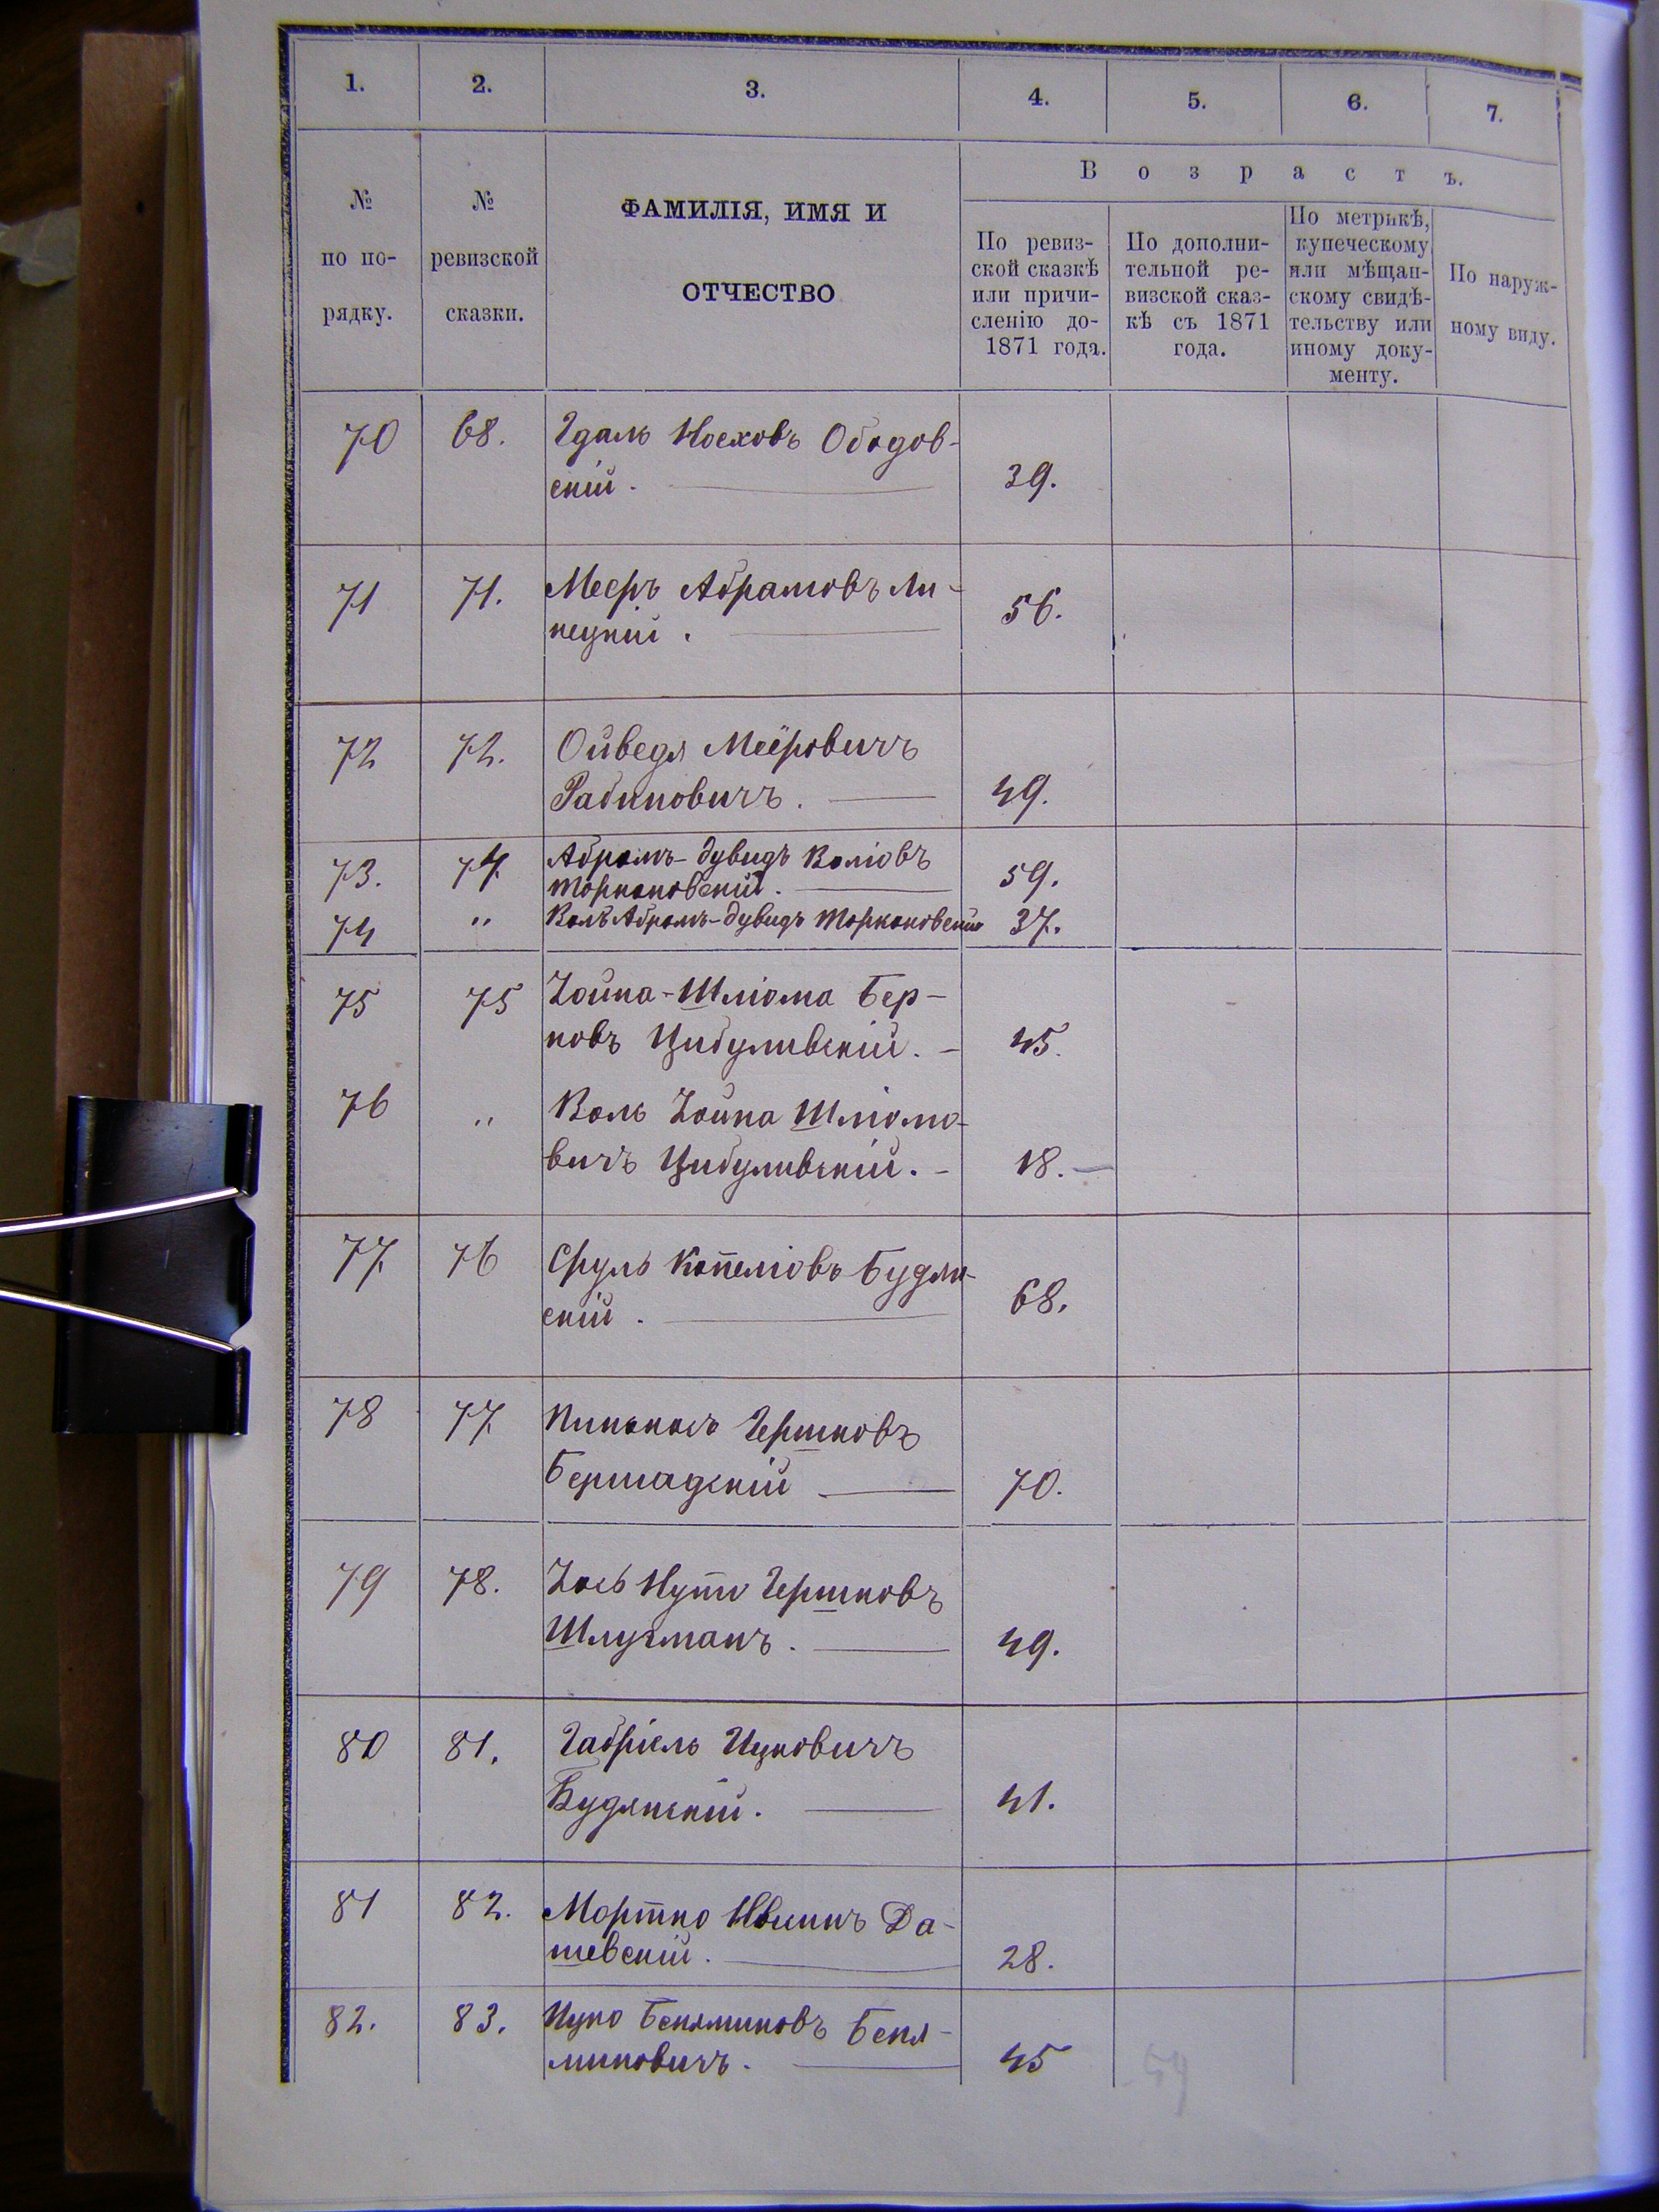 1. 2. 3. 4. 5. 6. 7.
В о з р а с т ъ.
№ по по-рядку.
№ ревизской сказки.
ФАМИЛІЯ, ИМЯ И
ОТЧЕСТВО
По ревиз-
ской сказкѣ
или причи-
сленію до-
1871 года.
По дополни-
тельной ре-
визской сказ-
кѣ съ 1871
года.
По метрикѣ,
купеческому
или мѣщан-
скому свидѣ-
тельству или
иному доку-
менту.
По наруж-
ному виду.
70 68. Гдаль Носховъ Ободов-
скій. 39.
71 71. Мееръ Абрамовъ Ли-
пецкій. 56.
72 72. Ойведя Меіровичъ
Рабиновичъ. 49.
73. 74. Абрамъ-Дувидъ Воліовъ
Торкановскій. 59.
74 " Волъ Абрамъ-Дувидъ Торкановскій 37.
75 75 Хоина-Шліома Бер-
ковъ Цибуливскій. 45.
76 " Воль Хоина Шліомо-
вичъ Цибуливскій. 18.
77. 76 Сруль Копеліовъ Будян-
скій. 68.
78 77. Пинхась Гершковъ
Бершадскій 70.
79 78. Хось Нута Гершковъ
Шлугманъ. 49.
80 81. Габріель Ицковичъ
Будянскій. 41.
81 82. Мортко Да-
шевскій. 28.
82. 83. Ицко Беняминовъ Беня-
миновичъ. 45